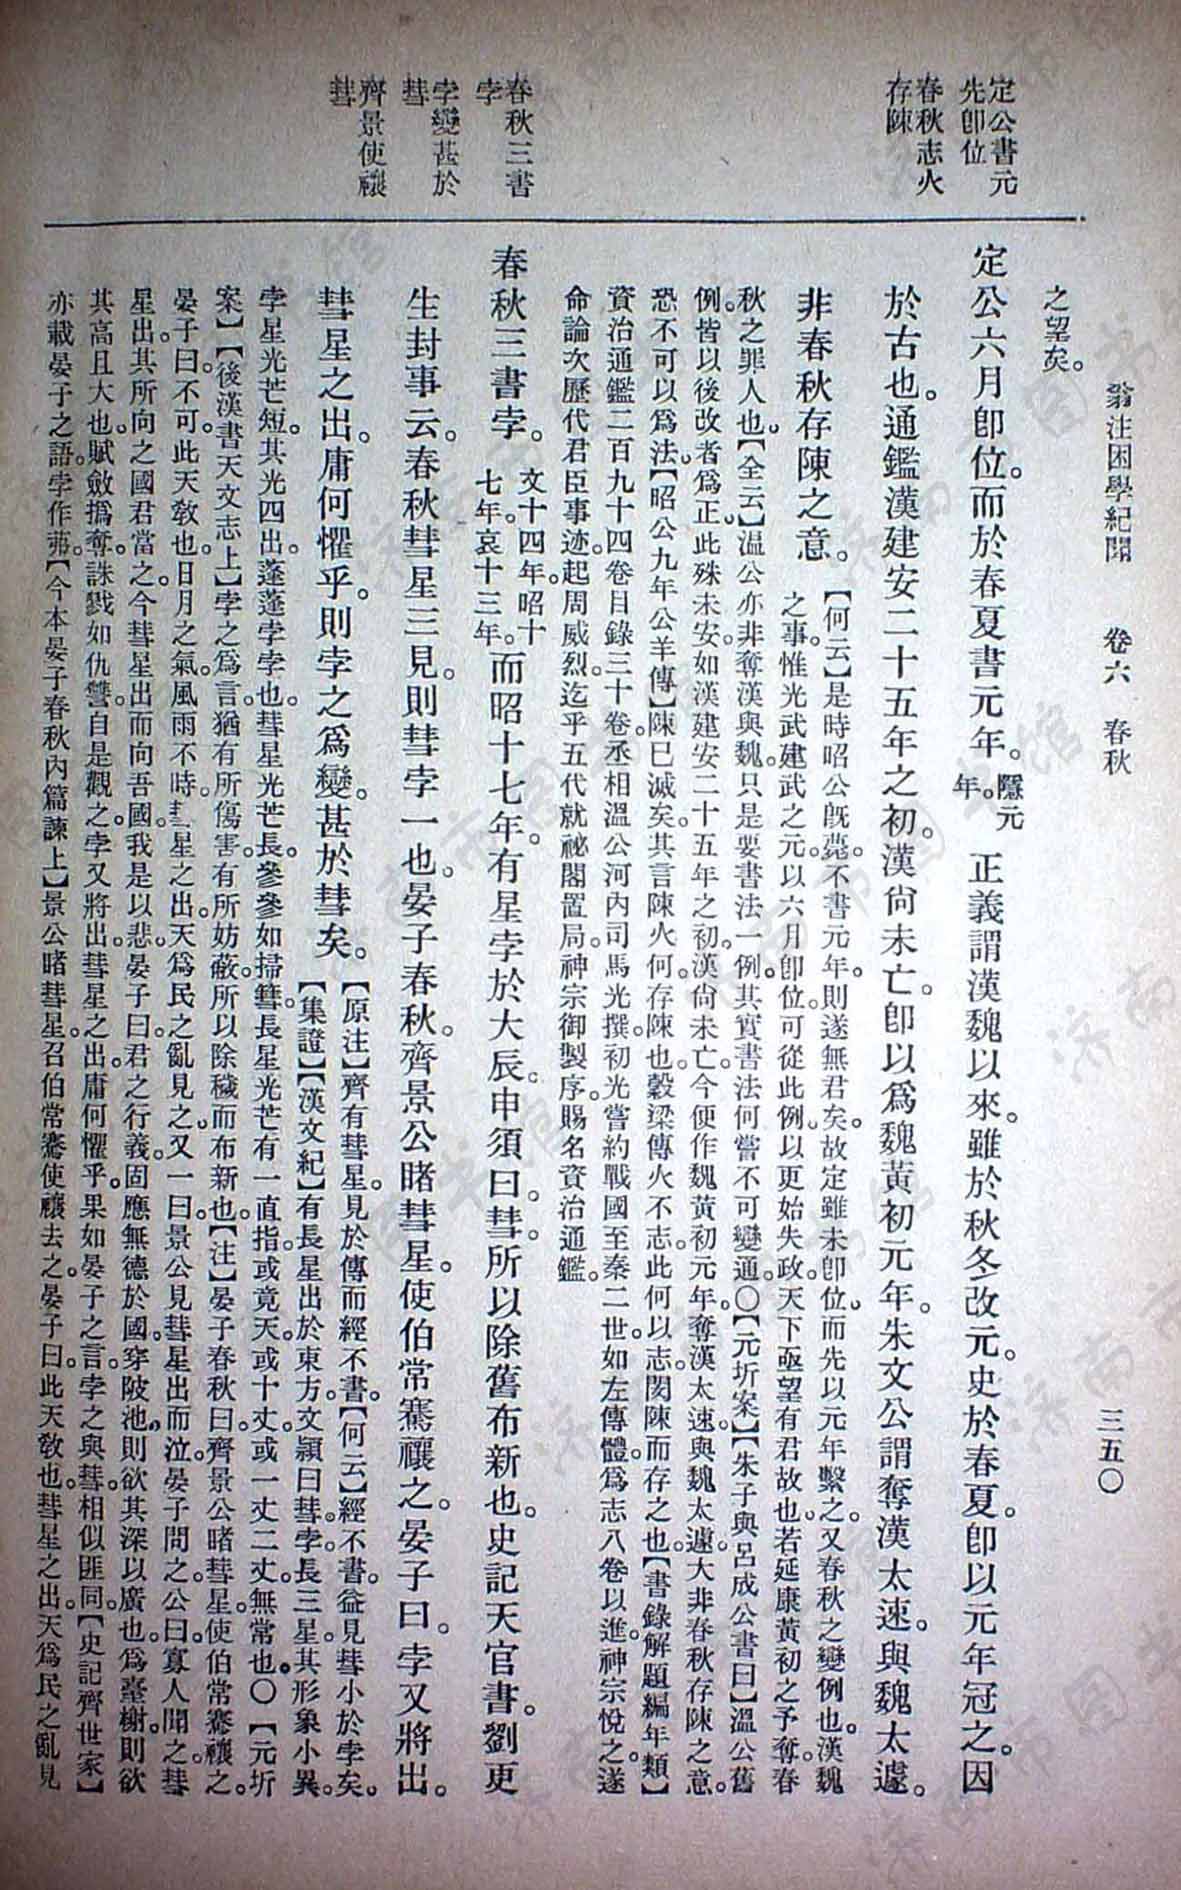 翁注困學紀聞　卷六　春秋　三五〇
定公書元
先卽位
春秋志火
存陳
春秋三書
孛
孛變甚於
彗
齊景使禳
彗
之望矣。
定公六月卽位。而於春夏書元年。隱元
年。
正義謂漢魏以來。雖於秋冬改元。史於春夏。卽以元年冠之。因
於古也。通鑑漢建安二十五年之初。漢尙未亡。卽以爲魏黃初元年。朱文公謂奪漢太速。與魏太遽。
非春秋存陳之意。【何云】是時昭公旣薨。不書元年。則遂無君矣。故定雖未卽位。而先以元年繫之。又春秋之變例也。漢魏
之事。惟光武建武之元。以六月卽位。可從此例。以更始失政。天下亟望有君故也。若延康黃初之予奪。春
秋之罪人也。【全云】溫公亦非奪漢與魏。只是要書法一例。其實書法何嘗不可變通。〇【元圻案】【朱子與呂成公書曰】溫公舊
例。皆以後改者爲正。此殊未安。如漢建安二十五年之初。漢尙未亡。今便作魏黃初元年。奪漢太速。與魏太遽。大非春秋存陳之意。
恐不可以爲法。【昭公九年公羊傳】陳已滅矣。其言陳火何。存陳也。穀梁傳火不志。此何以志。閔陳而存之也。【書錄解題編年類】
資治通鑑二百九十四卷目錄三十卷。丞相溫公河內司馬光撰。初光嘗約戰國至秦二世。如左傳體。爲志八卷以進。神宗悅之。遂
命論次歷代君臣事迹。起周威烈。迄乎五代就祕閣置局。神宗御製序。賜名資治通鑑。
春秋三書孛。文十四年。昭十
七年。哀十三年。而昭十七年。有星孛於大辰。申須曰。彗。所以除舊布新也。史記天官書。劉更
生封事云。春秋彗星三見。則彗孛一也。晏子春秋。齊景公睹彗星。使伯常騫禳之。晏子曰。孛又將出。
彗星之出。庸何懼乎。則孛之爲變。甚於彗矣。【原注】齊有彗星。見於傳而經不書。【何云】經不書。益見彗小於孛矣。
【集證】【漢文紀】有長星出於東方。文穎曰。彗。孛。長三星。其形象小異。
孛星光芒短。其光四出。蓬蓬孛孛也。彗星光芒長。參參如掃篲。長星光芒有一直指。或竟天。或十丈。或一丈二丈。無常也。〇【元圻
案】【後漢書天文志上】孛之爲言。猶有所傷害。有所妨蔽。所以除穢而布新也。【注】晏子春秋曰。齊景公睹彗星。使伯常騫禳之。
晏子曰。不可。此天敎也。日月之氣。風雨不時。星之出。天爲民之亂見之。又一曰。景公見彗星出而泣。晏子問之。公曰。寡人聞之。彗
星出。其所向之國君當之。今彗星出而向吾國。我是以悲。晏子曰。君之行義。固應無德於國。穿陂池。則欲其深以廣也。爲臺榭。則欲
其高且大也。賦斂撝奪。誅戮如仇讐。自是觀之。孛又將出。彗星之出。庸何懼乎。果如晏子之言。孛之與彗。相似匪同。【史記齊世家】
亦載晏子之語。孛作茀。【今本晏子春秋內篇諫上】景公睹彗星。召伯常騫使禳去之。晏子曰。此天敎也。彗星之出。天爲民之亂見